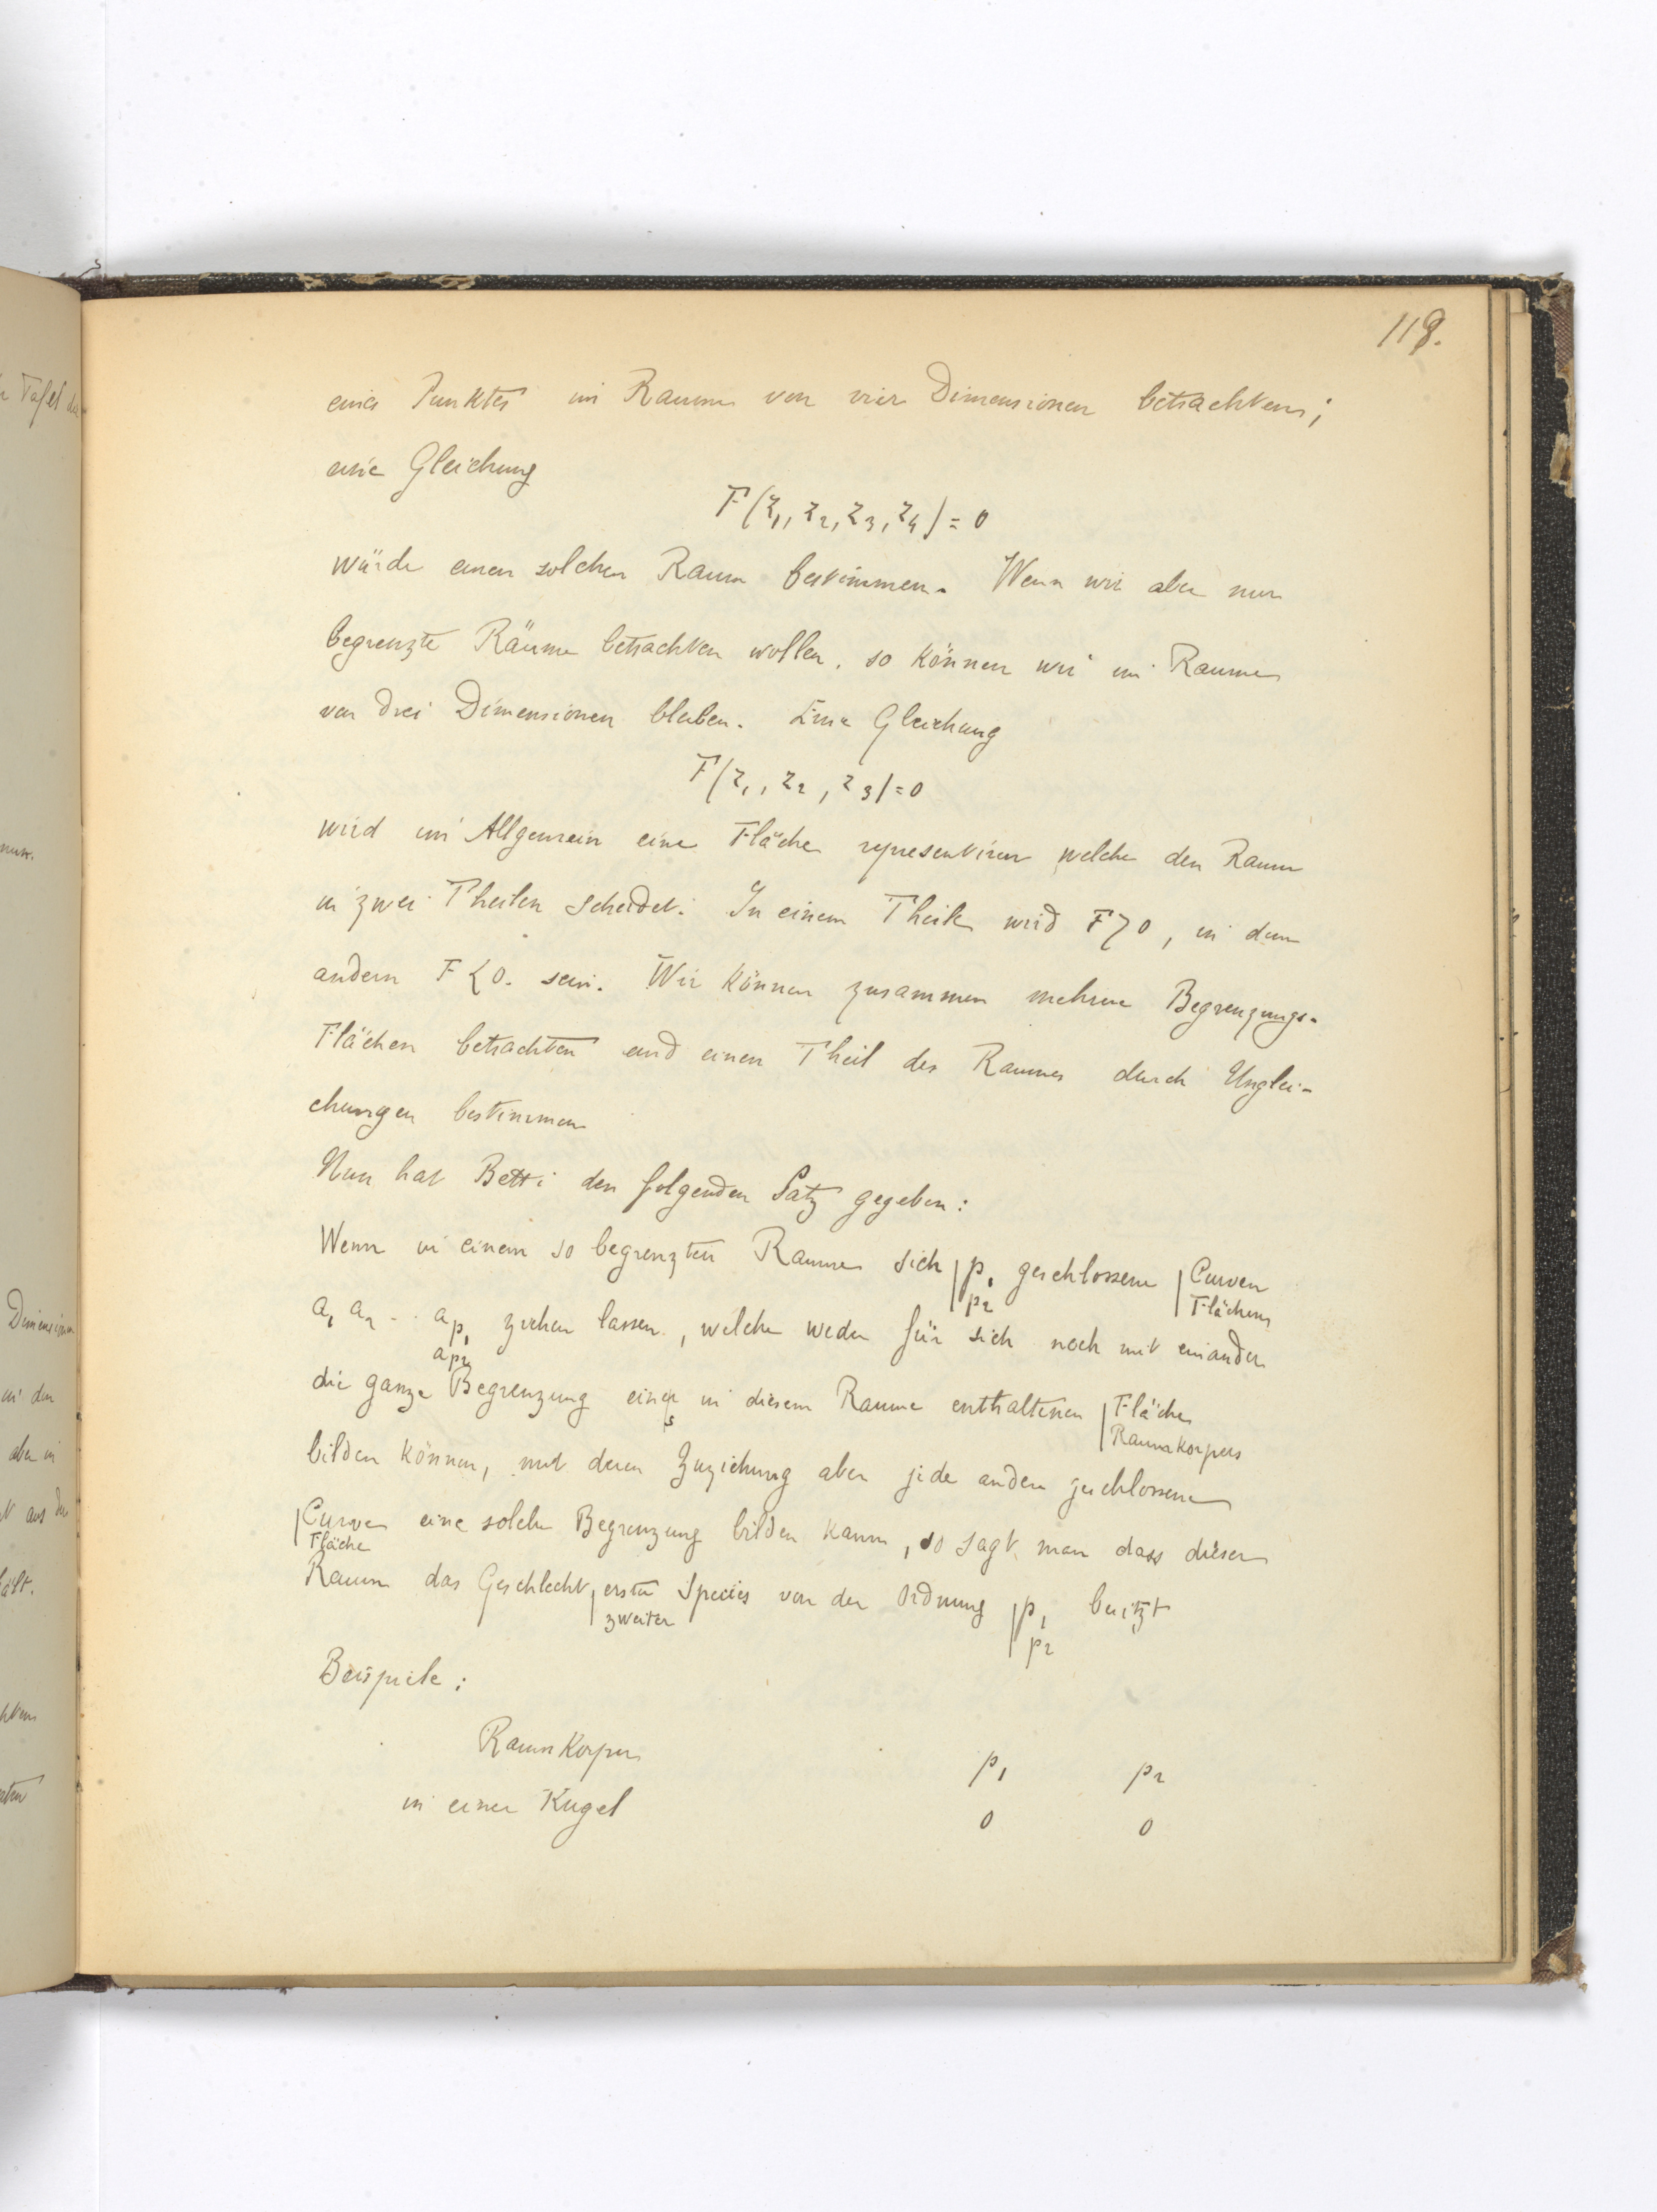 119.
eines Punktes im Raume von vier Dimensionen betrachten;
eine Gleichung
F(z₁, z₂, z₃, z₄) = 0
würde einen solchen Raum bestimmen. Wenn wir aber nur
begrenzte Räume betrachten wollen, so können wir im Raume
von drei Dimensionen bleiben. Eine Gleichung
F(z₁, z₂, z₃) = 0
wird im Allgemein eine Fläche representiren welche den Raum
in zwei Theilen scheidet. In einem Theile wird F>0, in dem
andern F<0. sein. Wir können zusammen mehrere Begrenzungs-
Flächen betrachten und einen Theil des Raumes durch Unglei-
chungen bestimmen
Nun hat Betti den folgenden Satz gegeben:
Wenn in einem so begrenzten Raume sich | p₁ geschlossene | Curven
p₂ Flächen
a₁ a₂ .. a p₁ ziehen lassen, welche weder für sich noch mit einander
a p₂
die ganze Begrenzung einer in diesem Raume enthaltenen | Fläche
s Raumkorpers
bilden können, mit deren Zuziehung aber jede andere geschlossene
| Curve eine solche Begrenzung bilden kann, so sagt man dass dieser
Fläche
Raum das Geschlecht | erster Species von der Ordnung | p₁ besitzt
zweiter p₂
Beispiele:
Raumkorper p₁ p₂
in einer Kugel 0 0
Tafel
Dimension
in der
aber in
aus der